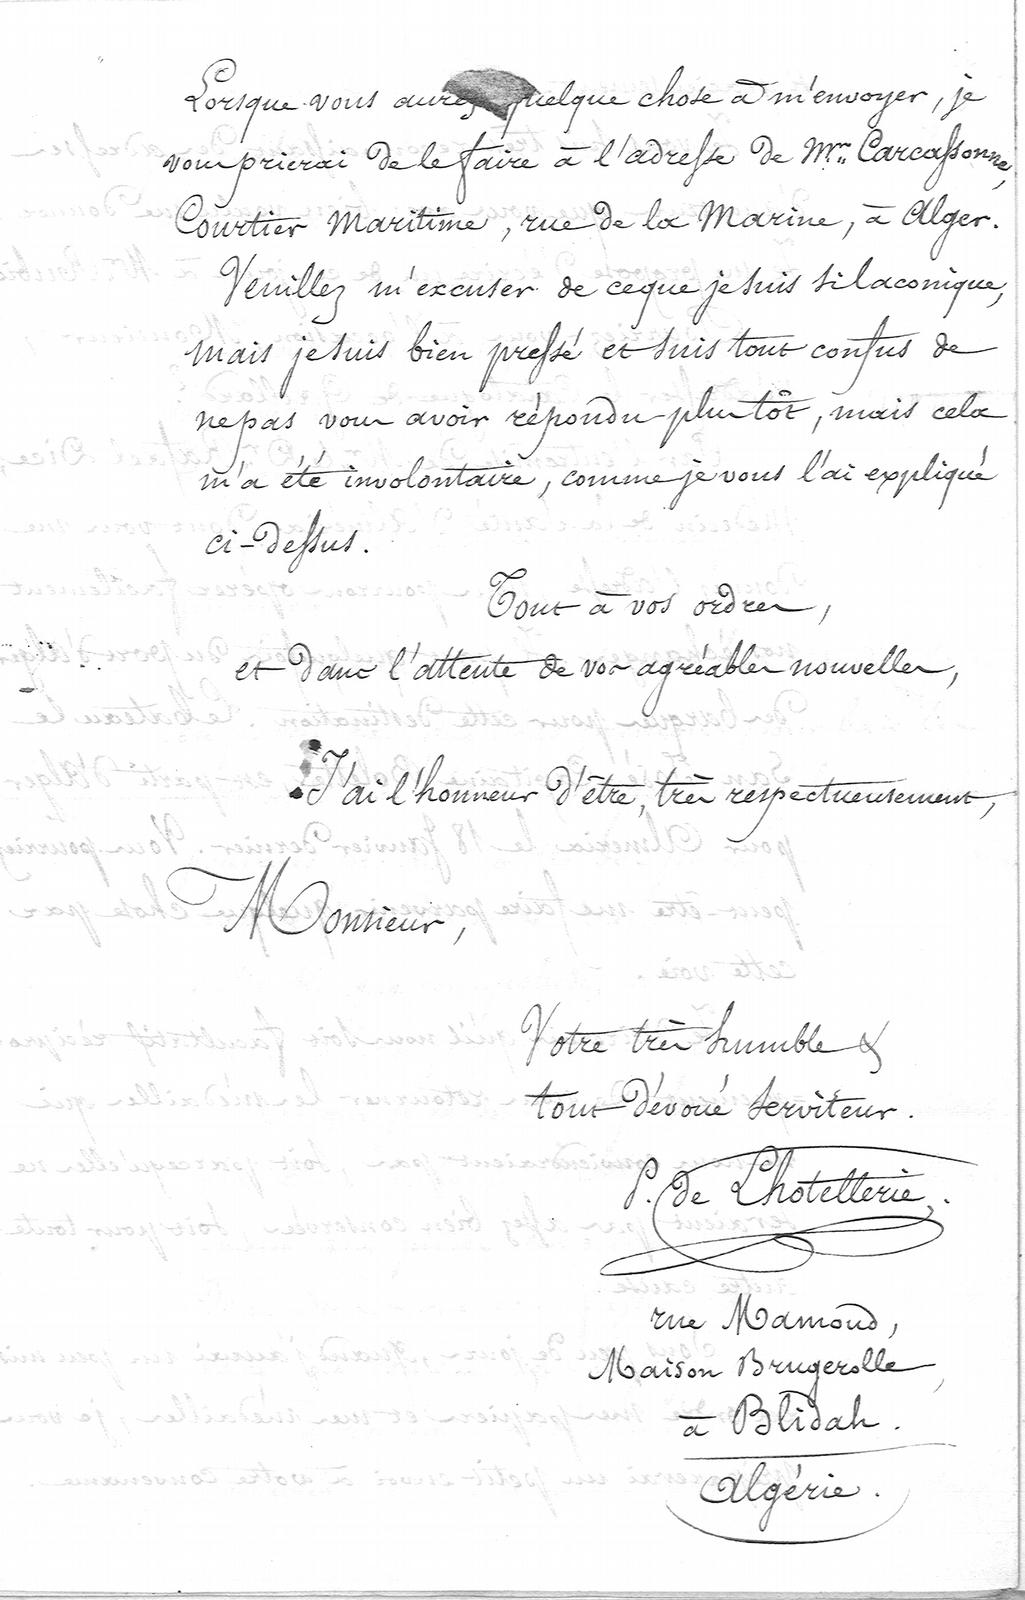 Lorsque vous aurez quelque chose à m'envoyer, je
vous prierai de le faire à l'adresse de Mrs. Carcassonne,
Courtier Maritime, rue de la Marine, à Alger.
Veuillez m'excuser de ce que je suis si laconique,
mais je suis bien pressé et suis tout confus de
ne pas vous avoir répondu plus tôt, mais cela
m'a été involontaire, comme je vous l'ai expliqué
ci-dessus.
Tout à vos ordres,
et dans l'attente de vos agréables nouvelles,
J'ai l'honneur d'être, très respectueusement,
Monsieur,
Votre très humble &
tout dévoué serviteur.
P. de Lhotellerie.
rue Mamoud,
Maison Brugerolle,
à Blidah.
Algérie.